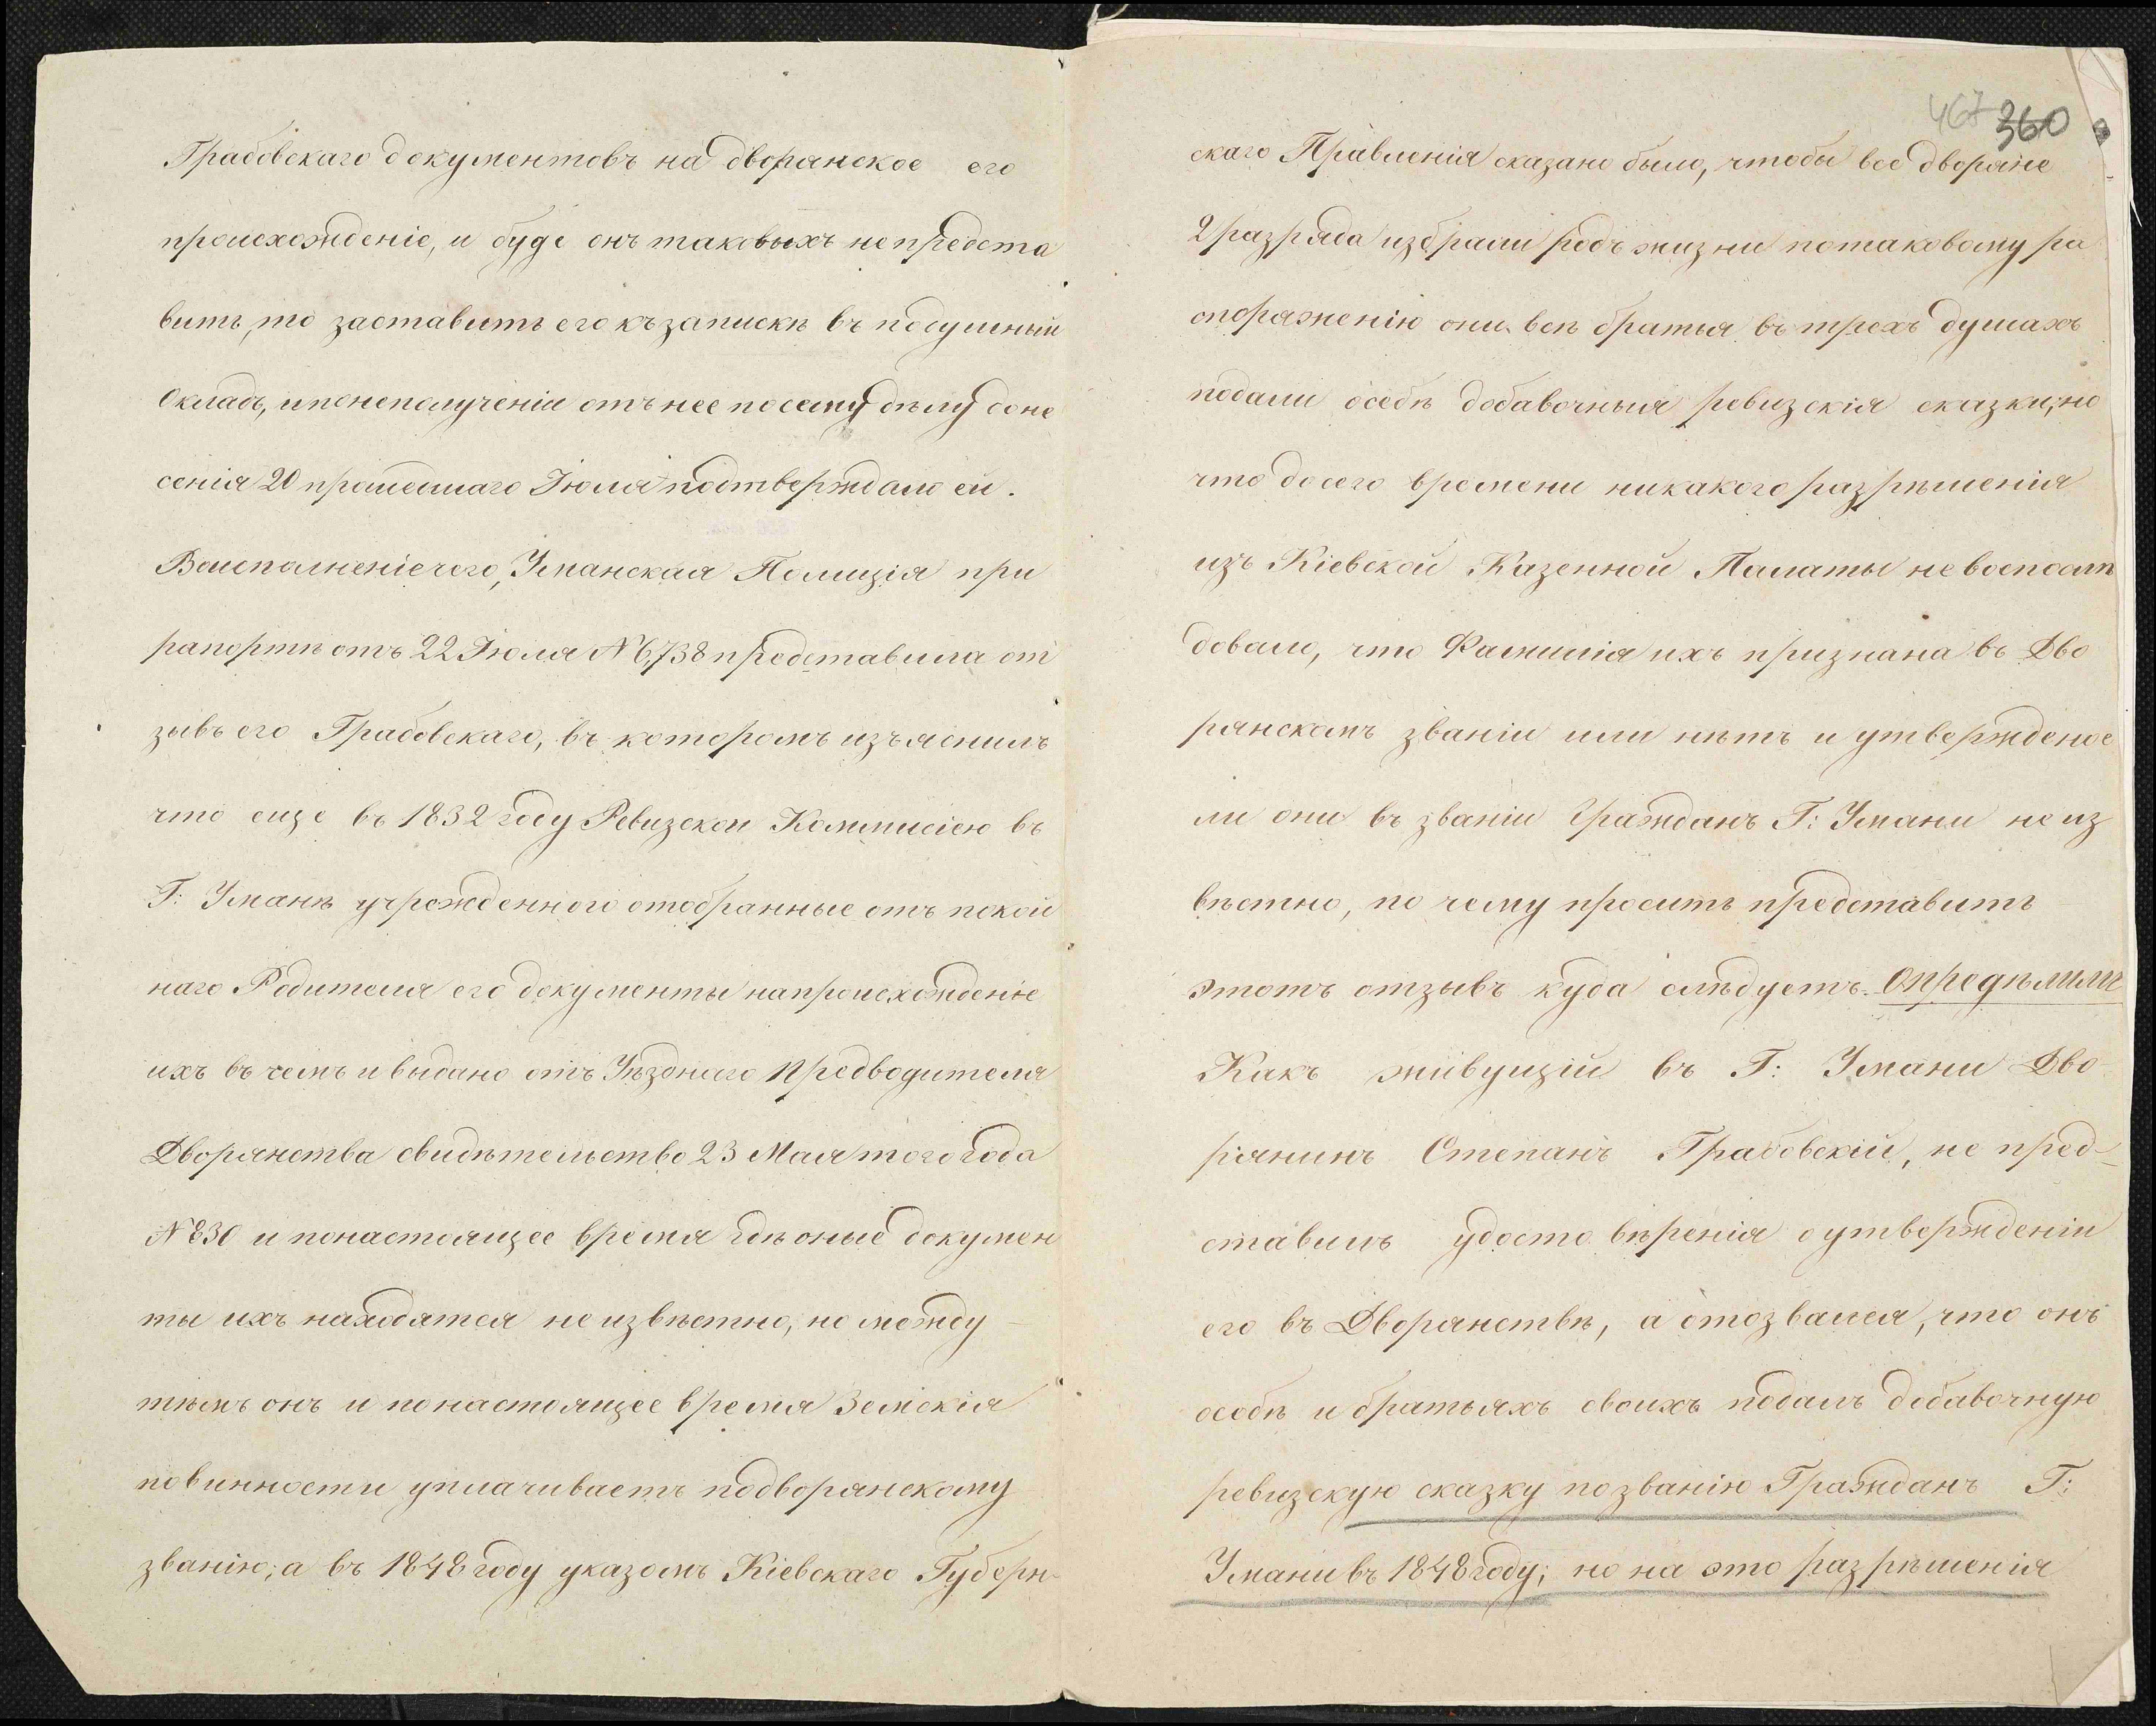 Грабовскаго документовъ на дворянское его
происхожденіе, и буде онъ таковыхъ непредста
витъ, то заставить его къ запискѣ въ подушный
Окладъ, и понеполученіи отъ нее посему дѣлу доне
сенія 20 прошедшаго Іюля подтверждало ей.
Воисполненіе чего, Уманская Полиція при
рапортѣ отъ 22 Іюля №6,738 представила от
зывъ его Грабовскаго, въ которомъ изъяснилъ
что еще въ 1832 году Ревизскои Коммисіею въ
Г: Уманѣ учрежденного отобранные отъ покой
наго Родителя его документы напроисхожденіе
ихъ въ чемъ и выдано отъ Уѣзднаго Предводителя
Дворянства свидѣтельство 23 Мая того года
№830 и понастоящее время гдѣ оные докумен
ты ихъ находятся не извѣстно, но между
тѣмъ онъ и понастоящее время Земскія
повинности уплачиваетъ подворянскому
званію; а въ 1848 году указомъ Кіевскаго Губерн-
467 360
скаго Правленія сказано было, чтобы все дворяне
2 разряда избрали родъ жизни потаковому ра
споряженію они всѣ братья въ трехъ душахъ
подали особѣ добавочныя ревизскія сказки; но
что досего времени никакого разрѣшенія
изъ Кіевской Казенной Палаты не воспослѣ
довало, что Фамилія ихъ признана въ Дво
рянскомъ званіи или нѣтъ и утверждено
ли они въ званіи Гражданъ Г: Умани не из
вѣстно, по чему проситъ представить
этотъ отзывъ куда слѣдуетъ. Опредѣлили
Какъ живущій въ Г: Умани Дво-
рянинъ Степанъ Грабовскій, не пред-
ставилъ удосто вѣренія о утвержденіи
его въ Дворянствѣ, а отозвался, что онъ
особѣ и братьяхъ своихъ подалъ добавочную
ревизскую сказку позванію Гражданъ Г:
Умани въ 1848 году; но на это разрѣшенія